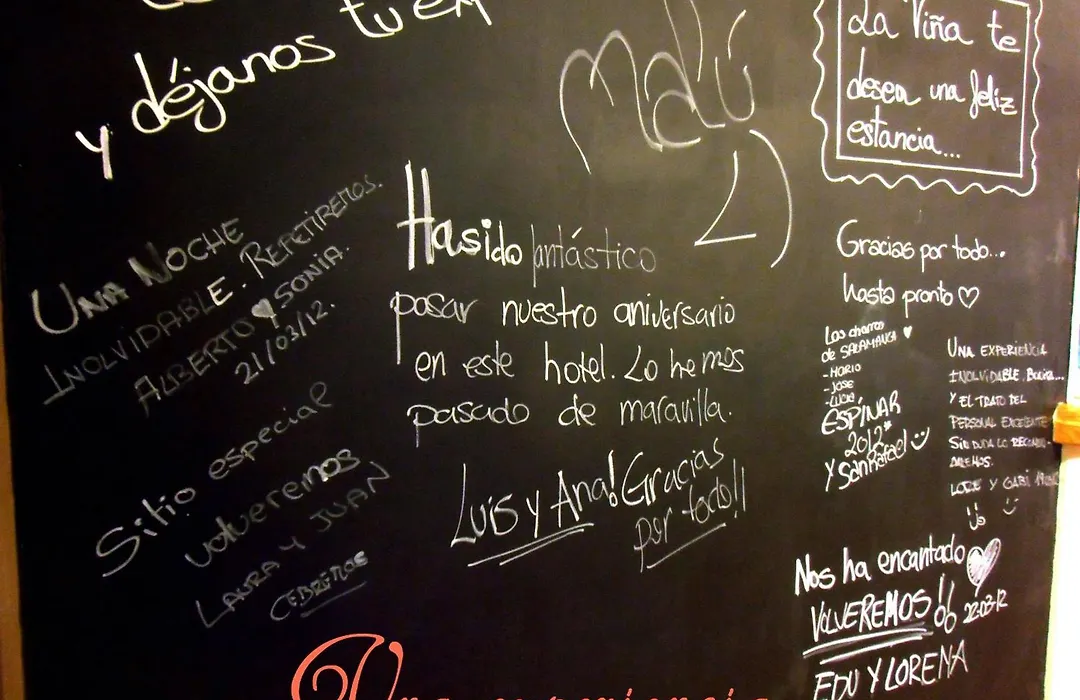 y déjanos tu
Malú
La Viña te
desea una feliz
estancia...
UNA NOCHE
INOLVIDABLE. REPETIREMOS.
ALBERTO Y SONIA.
21/03/12.
Ha sido fantástico
pasar nuestro aniversario
en este hotel. Lo hemos
pasado de maravilla.
Luis y Ana! Gracias
por todo!!
Gracias por todo...
hasta pronto ♡
Los charros
de SALAMANCA ♥
- MARIO
- JOSE
- LUCIA
ESPINAR
2012*
Y San Rafael
UNA EXPERIENCIA
INOLVIDABLE.
Y EL TRATO DEL
PERSONAL EXCELENTE
SIN DUDA LO RECOMEN-
DAREMOS.
LORE Y GABI
Sitio especial
volveremos
LAURA Y JUAN
Nos ha encantado
VOLVEREMOS!! 22-03-12
EDU Y LORENA
Una experiencia